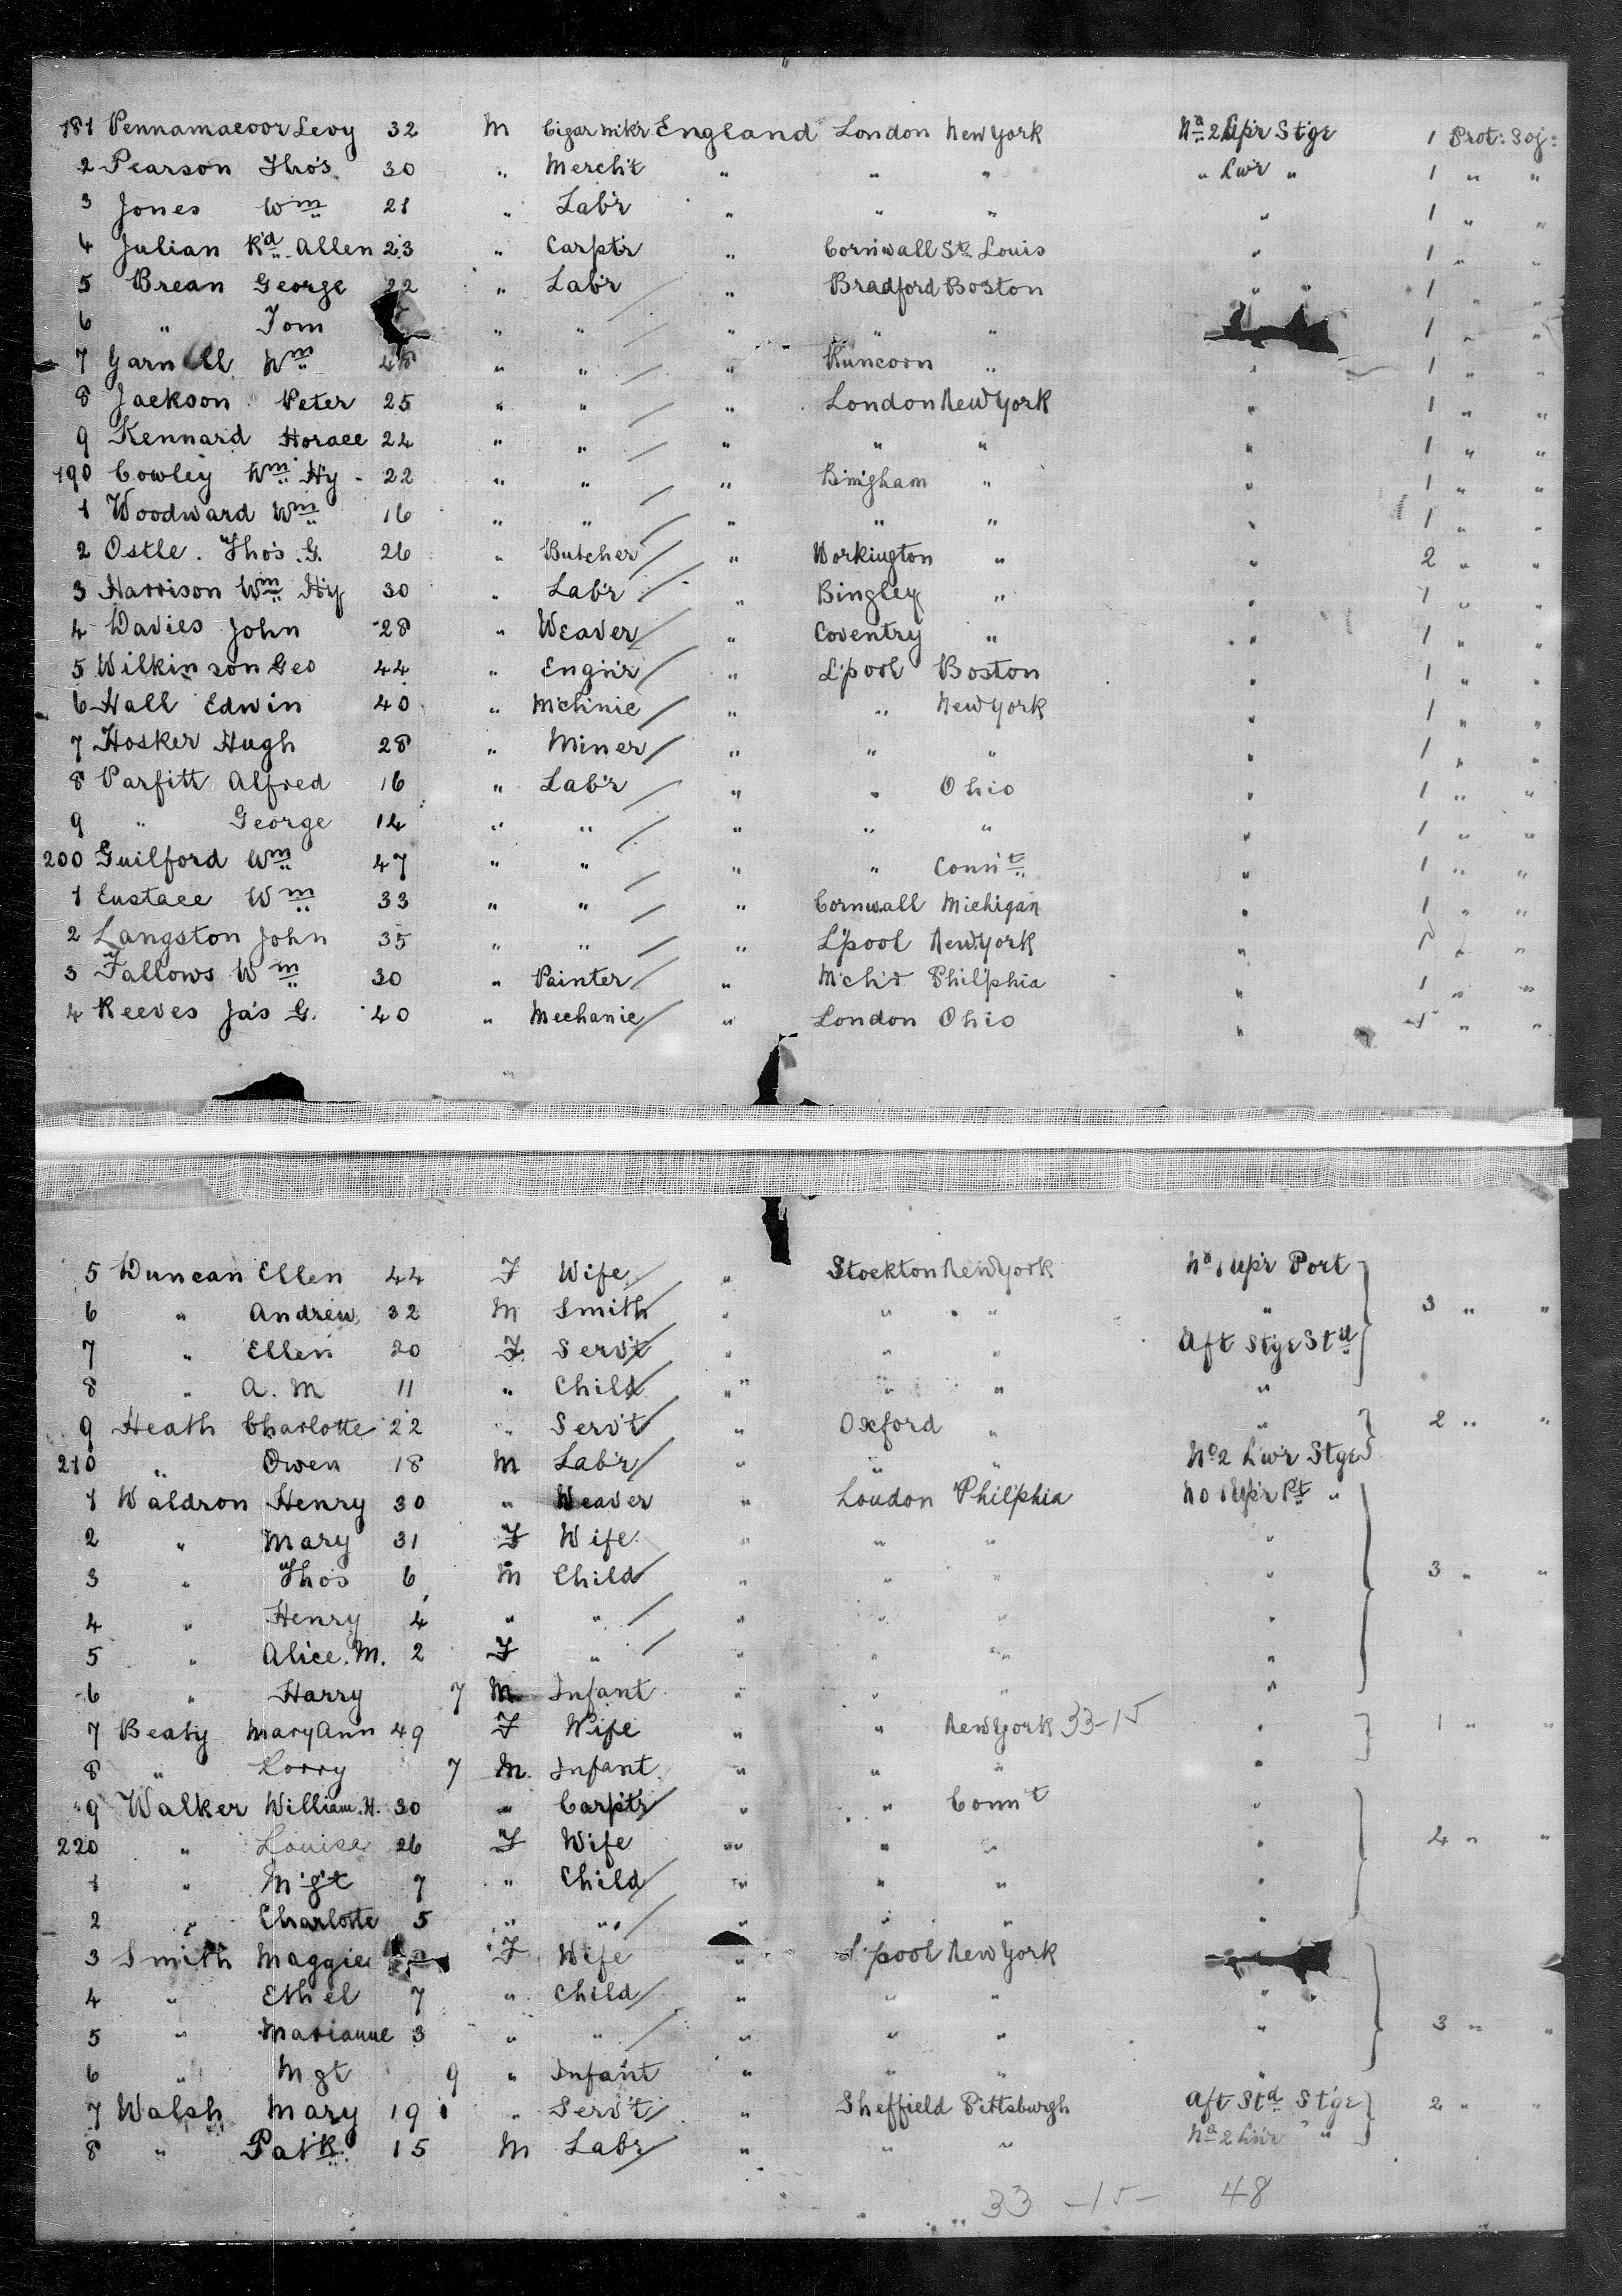 181 Pennamacoor Levy 32 M Cigar mk'r England London New York No 2 Up'r St'ge 1 Prot: Soj:
2 Pearson Tho's 30 " Merch't " " " " Lw'r " 1 " "
3 Jones Wm 21 " Lab'r " " " " 1 " "
4 Julian R'd Allen 23 " Carpt'r " Cornwall St Louis " 1 " "
5 Brean George 22 " Lab'r " Bradford Boston " " 1 " "
6 " Tom " " " " " 1 " "
7 Garnell Wm 48 " " " Runcorn " " 1 " "
8 Jackson Peter 25 " " " London New York " 1 " "
9 Kennard Horace 24 " " " " " " 1 " "
190 Cowley Wm Hy 22 " " " Bingham " " 1 " "
1 Woodward Wm 16 " " " " " " 1 " "
2 Ostle. Tho's. G. 26 " Butcher " Workington " " 2 " "
3 Harrison Wm Hy 30 " Lab'r " Bingley " " 1 " "
4 Davies John 28 " Weaver " Coventry " " 1 " "
5 Wilkinson Geo 44 " Engin'r " L'pool Boston " 1 " "
6 Hall Edwin 40 " M'chinic " " New York " 1 " "
7 Hosker Hugh 28 " Miner " " " " 1 " "
8 Parfitt Alfred 16 " Lab'r " " Ohio " 1 " "
9 " George 14 " " " " " " 1 " "
200 Guilford Wm 47 " " " " Conn't " 1 " "
1 Eustace Wm 33 " " " Cornwall Michigan " 1 " "
2 Langston John 35 " " " L'pool New York " 1 " "
3 Fallows Wm 30 " Painter " M'ch'r Phil'phia " 1 " "
4 Reeves Ja's G. 40 " Mechanic " London Ohio " 1 " "
5 Duncan Ellen 44 F Wife " Stockton New York No 1 Up'r Port
6 " Andrew 32 M Smith " " " " 3 " "
7 " Ellen 20 F Serv't " " " Aft St'ge St'd
8 " A. M 11 " Child " " " "
9 Heath Charlotte 22 " Serv't " Oxford " " 2 " "
210 " Owen 18 M Lab'r " " " No 2 Lw'r St'ge
1 Waldron Henry 30 " Weaver " London Phil'phia No 1 Up'r Pt "
2 " Mary 31 F Wife " " " "
3 " Tho's 6 M Child " " " " 3 " "
4 " Henry 4 " " " " " "
5 " Alice. M. 2 F " " " " "
6 " Harry 7 M Infant " " " "
7 Beaty Mary Ann 49 F Wife " " New York 33-15 " 1 " "
8 " Lorry 7 M. Infant " " " "
9 Walker William. H. 30 " Carpt'r " " Conn't "
220 " Louisa 26 F Wife " " " " 4 " "
1 " M'g't 7 " Child " " " "
2 " Charlotte 5 " " " " " "
3 Smith Maggie F Wife " L'pool New York
4 " Ethel 7 " Child " " " "
5 " Marianne 3 " " " " " " 3 " "
6 " Mgt 9 " Infant " " " "
7 Walsh Mary 19 " Serv't " Sheffield Pittsburgh Aft St'd St'ge 2 " "
8 " Pat'k. 15 M Labr " " " No 2 Lw'r "
33 -15- 48